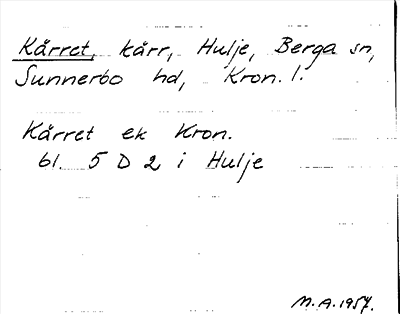 Kärret, kärr, Hulje, Berga sn,
Sunnerbo hd, Kron. l.
Kärret ek Kron.
bl. 5 D 2 i Hulje
M.A. 1957.